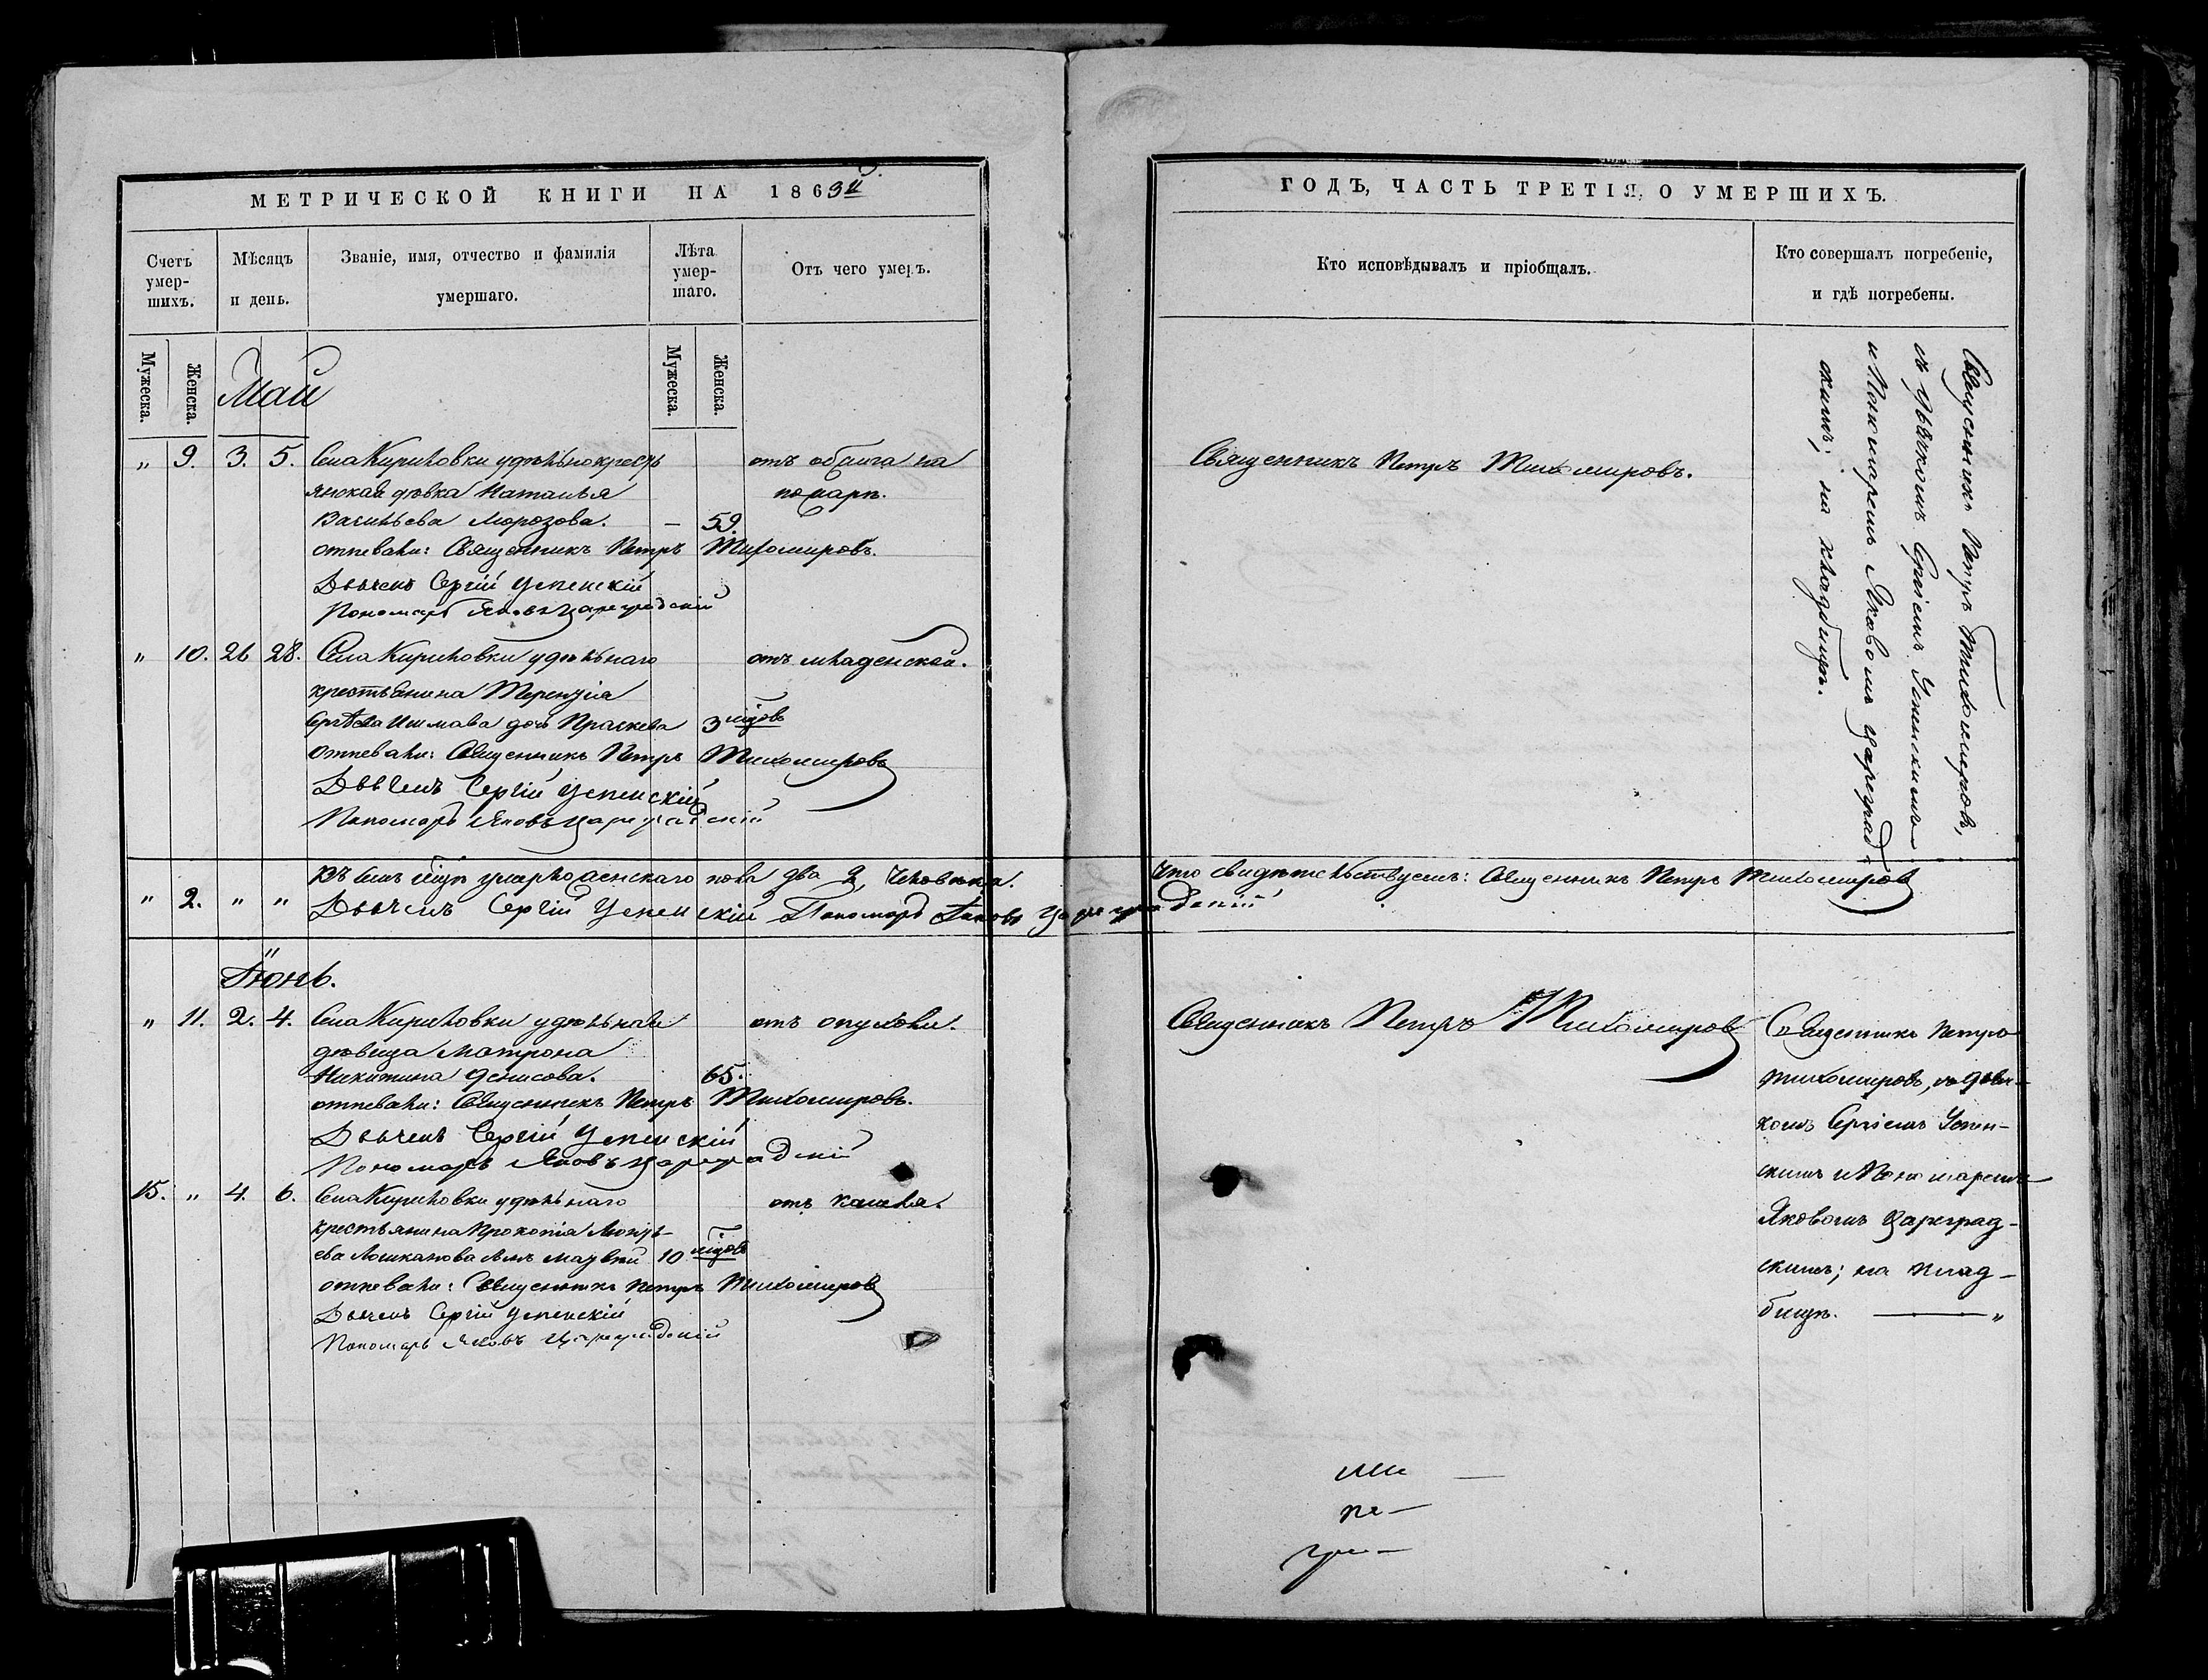 МЕТРИЧЕСКОЙ КНИГИ НА 1863й
Счетъ умер-шихъ.
Мѣсяцъ и день.
Званіе, имя, отчество и фамилія умершаго.
Лѣта умер-шаго.
Отъ чего умеръ.
Мужеска.
Женска.
Май
Мужеска.
Женска.
„ 9. 3. 5. Села Кириловки удѣльнокресть
янская дѣвка Наталья
Васильева Морозова. — 59.
отъ на
пожарѣ.
отпевали: Священникъ Петръ Тихомировъ.
Дьячекъ Сергій Успенскій
Пономарь Яковъ Цареградскій
„ 10. 26 28. Села Кириловки удѣльнаго отъ младенской.
крестьянина Терентія
Сергѣева дочь Праскева 3 мцовъ
отпевали: Священникъ Петръ Тихомировъ
Дьячекъ Сергій Успенскій
Пономарь Яковъ Цареградскій
„ 2. „ „ Въ маѣ мцѣ умерло женскаго пола два 2, человѣка.
Дьячекъ Сергій Успенскій Пономарь Яковъ Цареградскій
Іюнь.
„ 11. 2. 4. Села Кириловки удѣльная отъ опухоли.
дѣвица Матрона
Никитина Денисова. 65.
отпевали: Священникъ Петръ Тихомировъ.
Дьячекъ Сергій Успенскій
Пономарь Яковъ Цареградскій
15. „ 4. 6. Села Кириловки удѣльнаго отъ кашля.
крестьянина Прокопія
ева сынъ 10 мцовъ
отпевали: Священникъ Петръ Тихомировъ
Дьячекъ Сергій Успенскій
Пономарь Яковъ Цареградскій
ГОДЪ, ЧАСТЬ ТРЕТІЯ, О УМЕРШИХЪ.
Кто исповѣдывалъ и пріобщалъ.
Кто совершалъ погребеніе,
и гдѣ погребены.
Священникъ Петръ Тихомировъ.
Священникъ Петръ Тихомировъ,
съ дьячкомъ Сергіемъ Успенскимъ
и Пономаремъ Яковомъ Цареград-
скимъ; на кладбищѣ.
Что свидѣтельствуемъ: Священникъ Петръ Тихомировъ
Священникъ Петръ Тихомировъ
Священникъ Петръ
Тихомировъ, съ дьяч-
комъ Сергіемъ Успен-
скимъ и Пономаремъ
Яковомъ Цареград-
скимъ; на клад-
бищѣ. — „